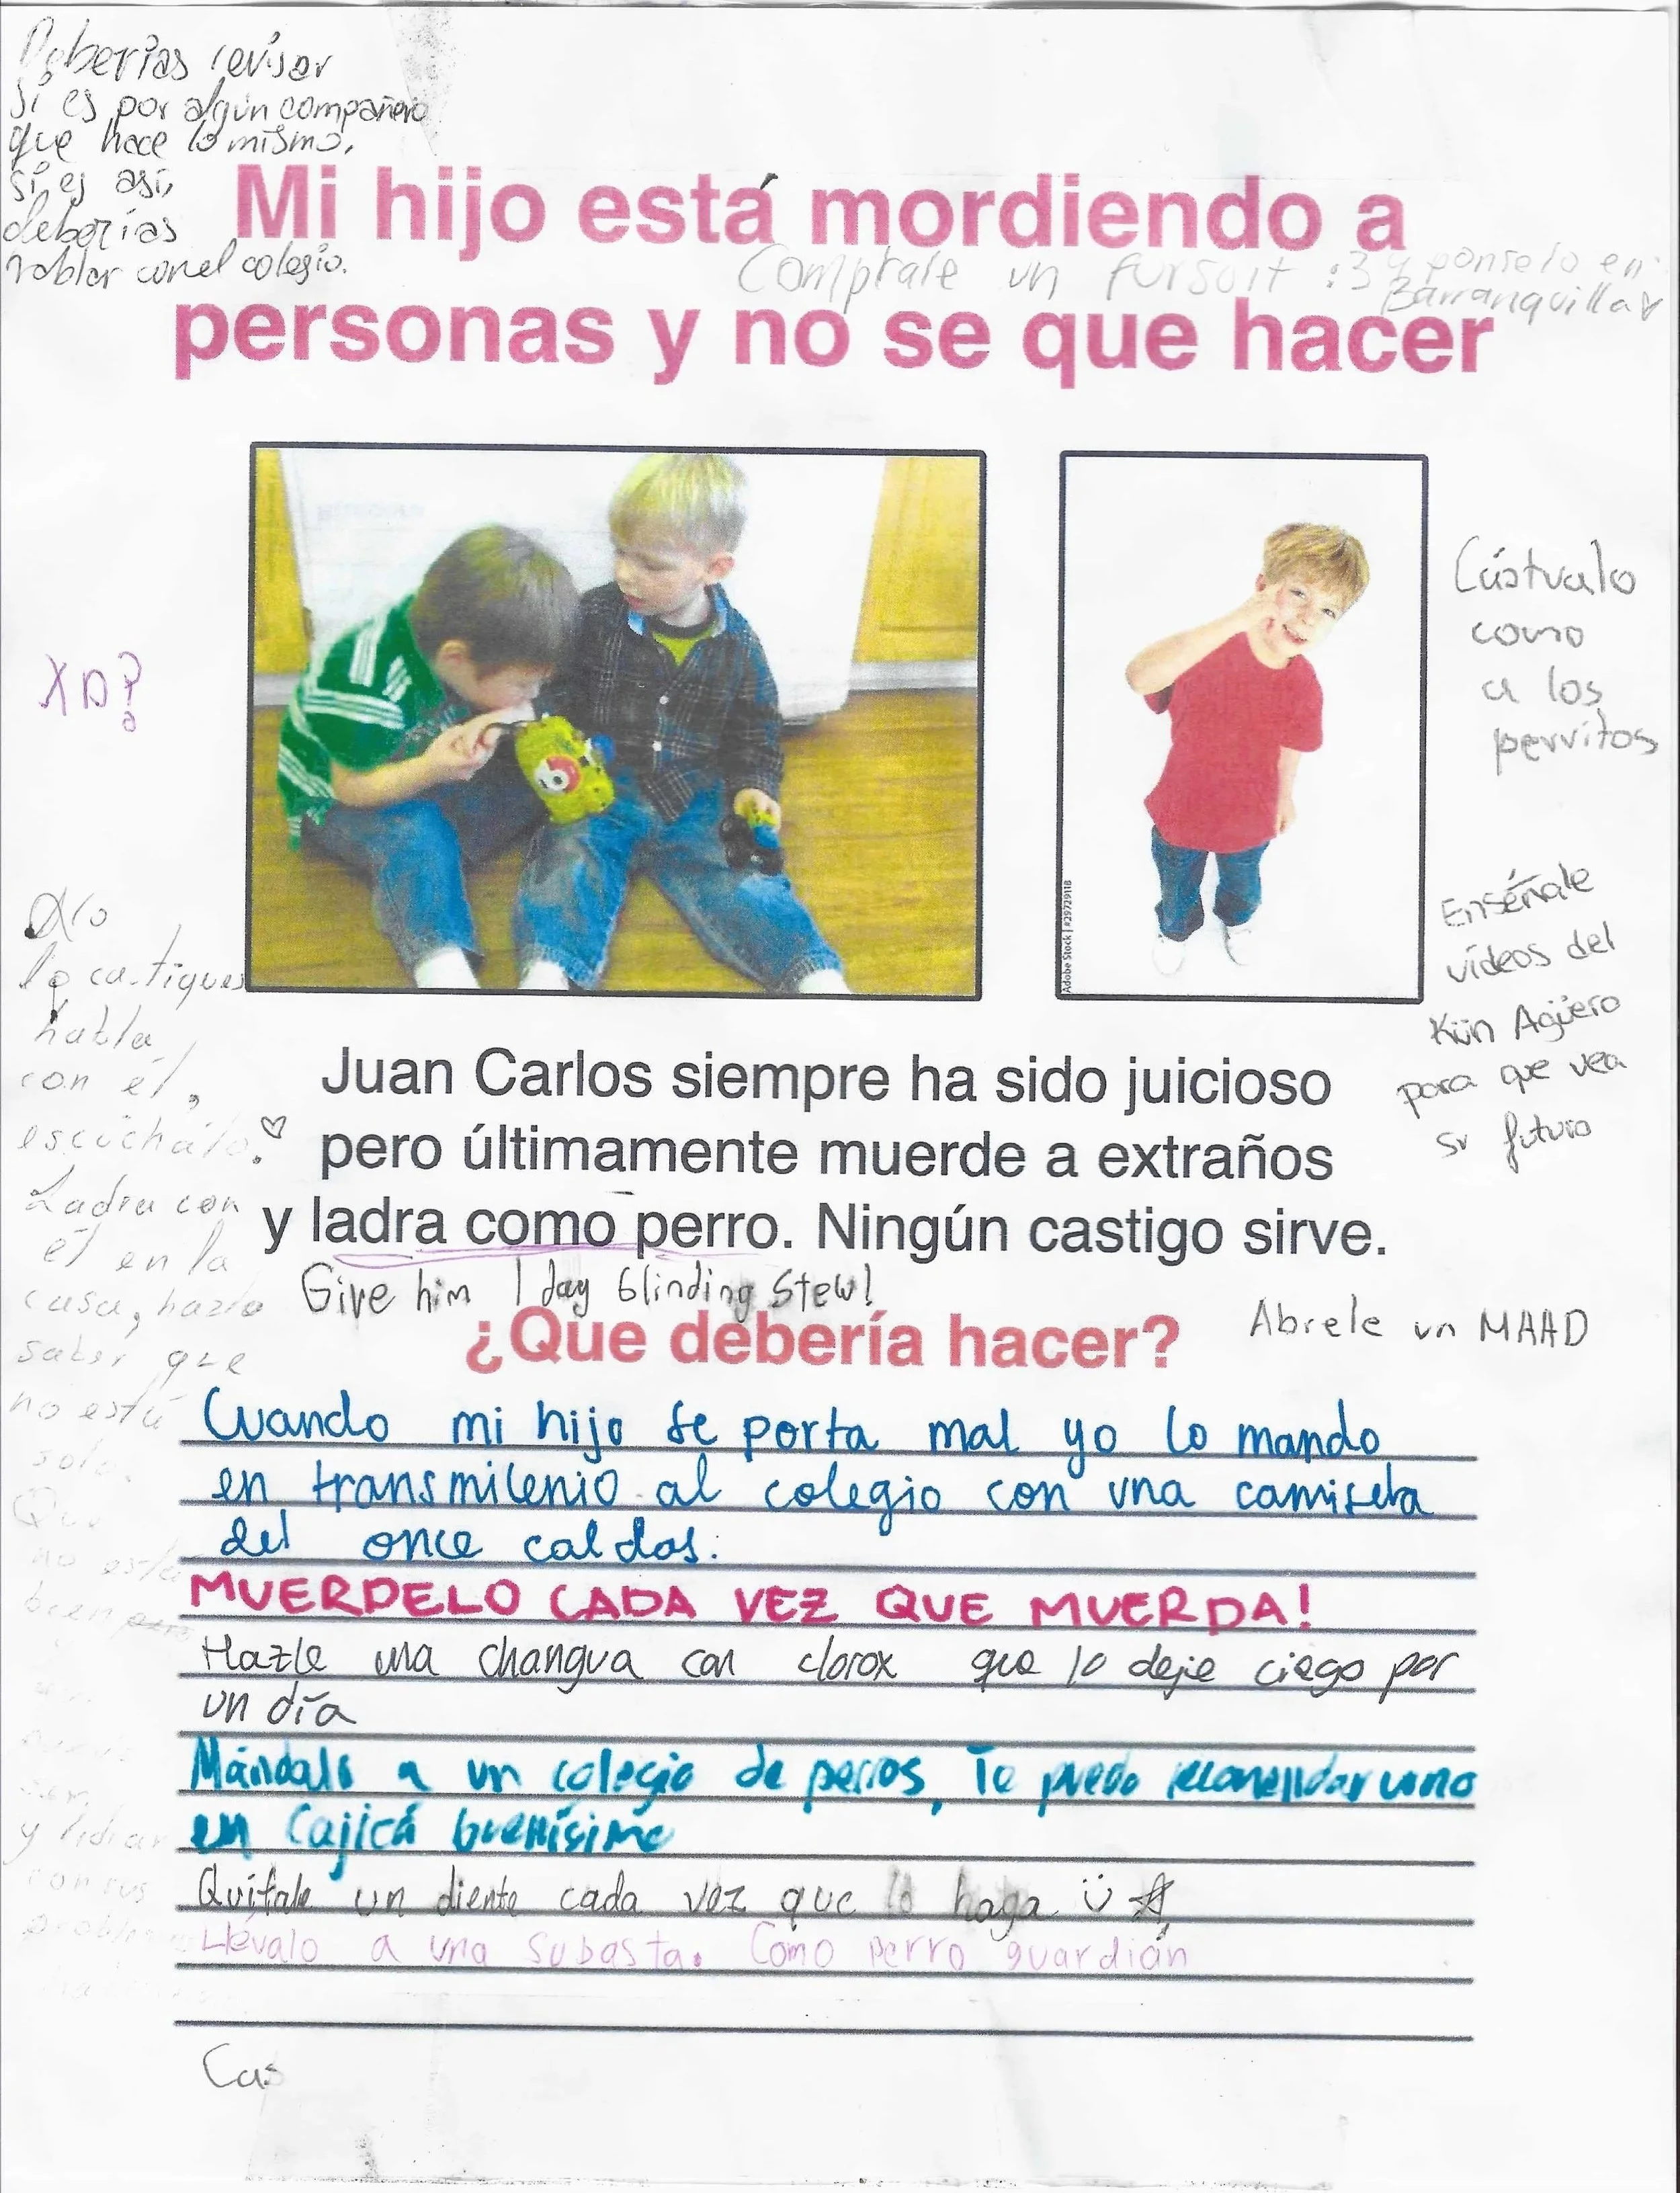 Deberías revisar
si es por algún compañero
que hace lo mismo,
si es así,
deberías
hablar con el colegio.
Mi hijo está mordiendo a
Comptrale un fursuit :3 y ponselo en
Barranquilla
personas y no se que hacer
XD?
Cástralo
como
a los
perritos
Adobe Stock | #29729118
Enséñale
vídeos del
Kün Agüero
para que vea
su futuro
No
lo castigues
habla
con él,
escúchalo.
Ladra con
él en la
casa, hazlo
saber que
no está
solo.
Que
no está
bien
y lidiar
con sus
Juan Carlos siempre ha sido juicioso
pero últimamente muerde a extraños
y ladra como perro. Ningún castigo sirve.
Give him 1 day blinding stew!
¿Que debería hacer?
Abrele un MAAD
Cuando mi hijo se porta mal yo lo mando
en transmilenio al colegio con una camiseta
del once caldas.
MUERDELO CADA VEZ QUE MUERDA!
Hazle una changua con clorox que lo deje ciego por
un día
Mándalo a un colegio de perros, Te puedo recomendar uno
en Cajicá buenísimo
Quítale un diente cada vez que lo haga
Llévalo a una subasta. Como perro guardián
Cas